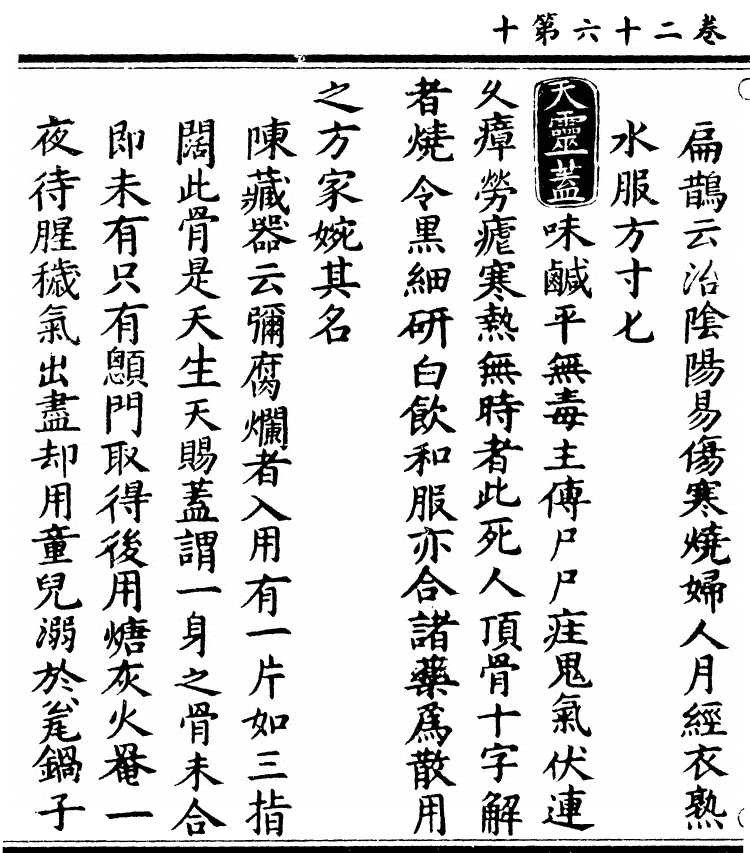 卷二十六第十
扁鵲云治陰陽易傷寒燒婦人月經衣熟
水服方寸匕
天靈蓋味鹹平無毒主傳尸尸疰鬼氣伏連
久瘴勞瘧寒熱無時者此死人頂骨十字解
者燒令黒細研白飲和服亦合諸藥爲散用
之方家婉其名
陳藏器云彌腐爛者入用有一片如三指
闊此骨是天生天賜蓋謂一身之骨未合
即未有只有顖門取得後用煻灰火罨一
夜待腥穢氣出盡却用童兒溺於瓷鍋子